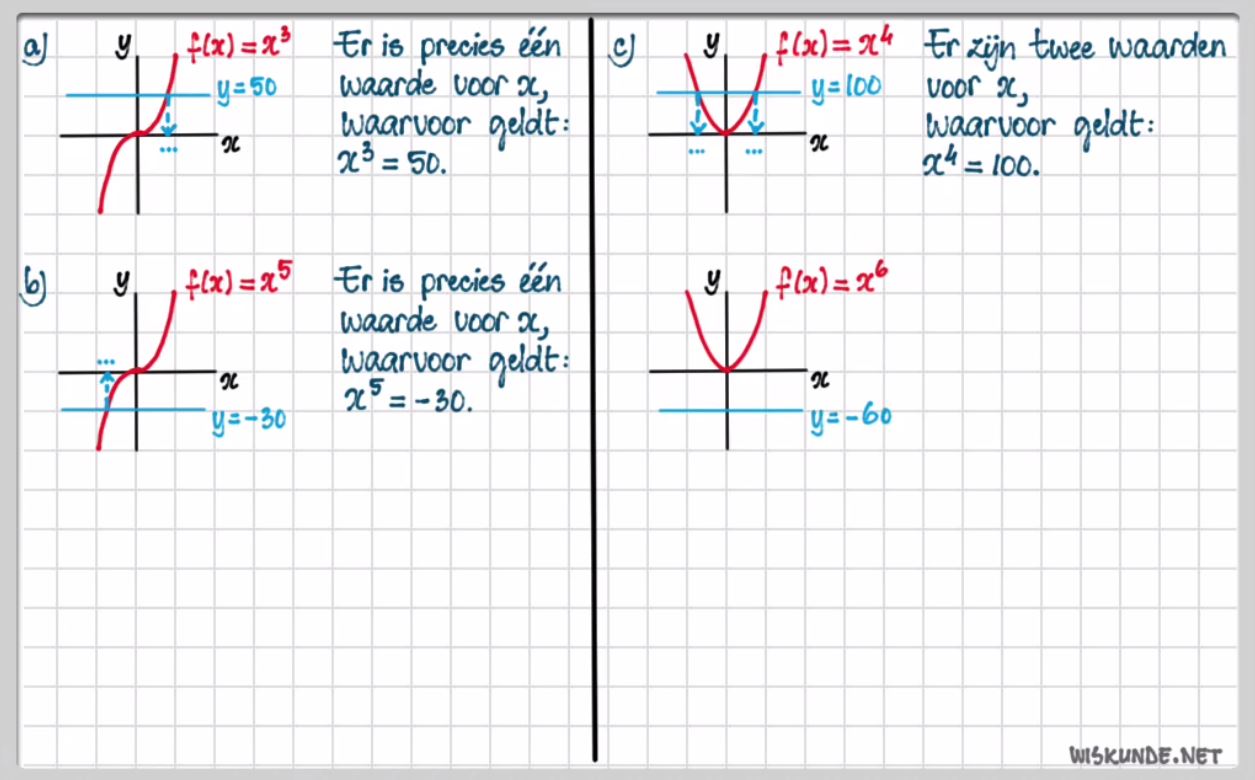 a)
y
f(x) = x³
y = 50
x
...
Er is precies één
waarde voor x,
waarvoor geldt:
x³ = 50.
b)
y
f(x) = x⁵
...
x
y = -30
Er is precies één
waarde voor x,
waarvoor geldt:
x⁵ = -30.
c)
y
f(x) = x⁴
y = 100
x
... ...
Er zijn twee waarden
voor x,
waarvoor geldt:
x⁴ = 100.
y
f(x) = x⁶
x
y = -60
WISKUNDE.NET